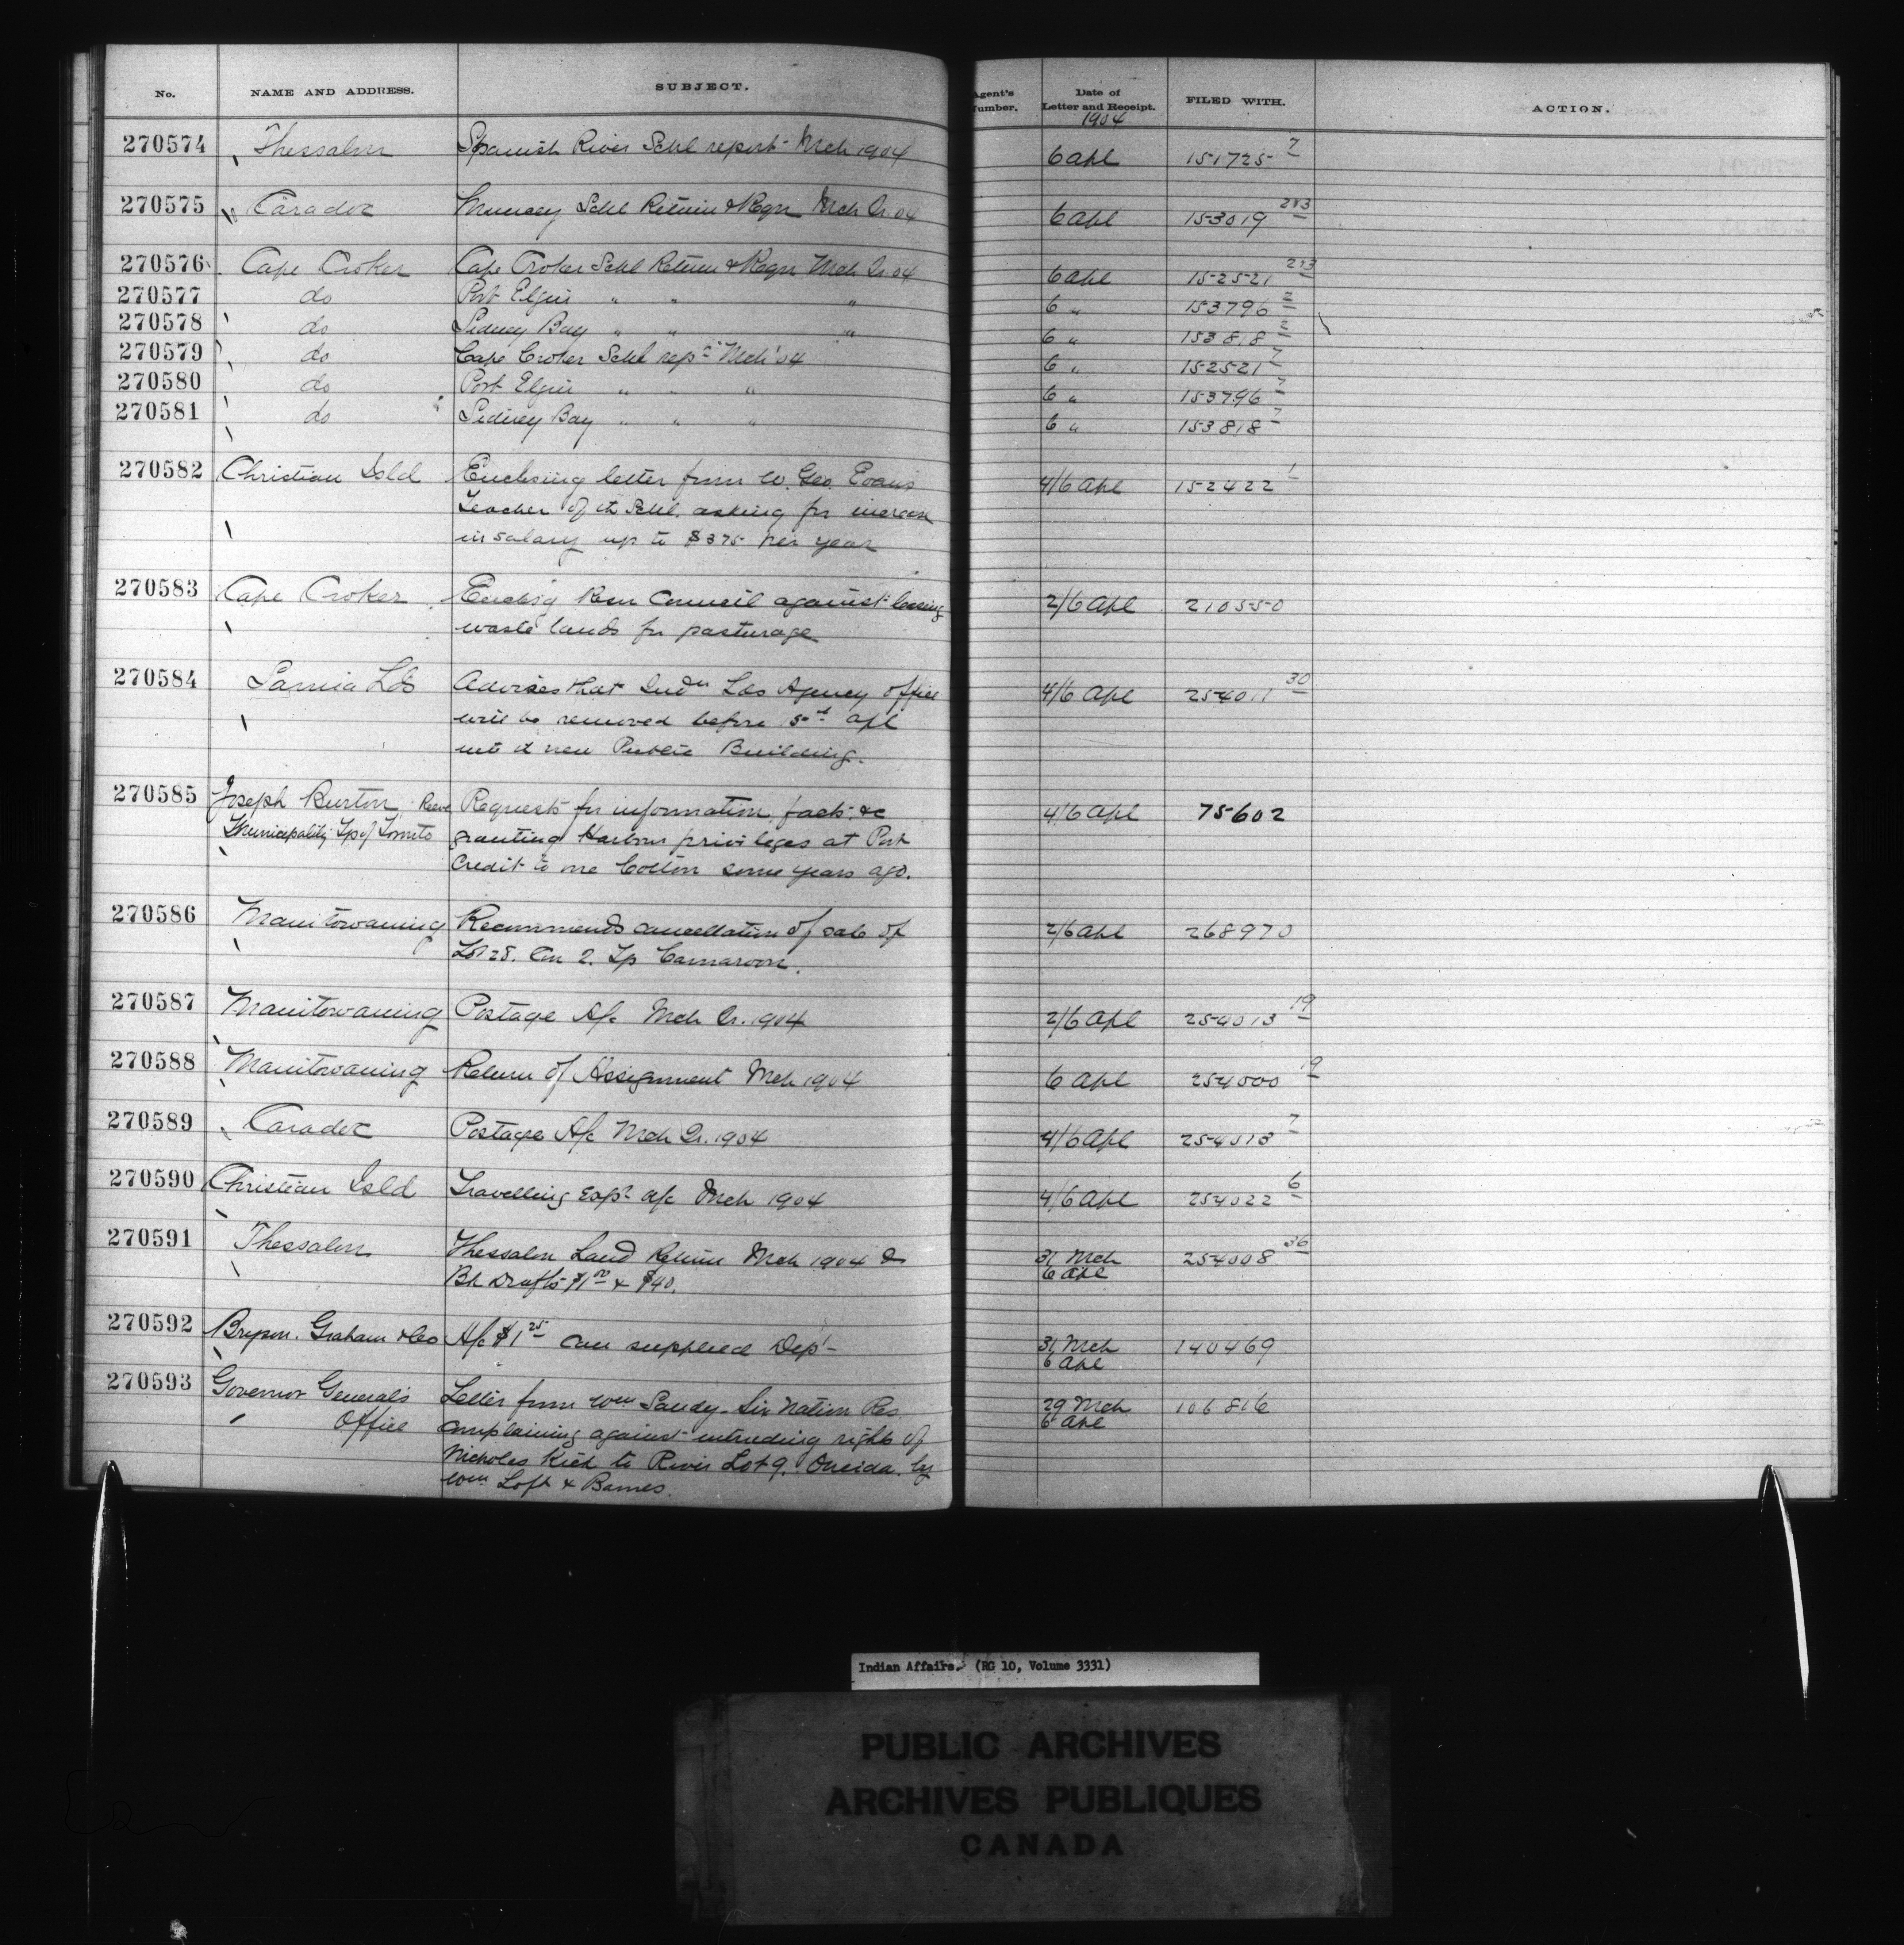 No. NAME AND ADDRESS. SUBJECT. Agent's Number. Date of Letter and Receipt. FILED WITH. ACTION.
1904
270574 Thessalon Spanish River Schl report Mch 1904 6 Apl 151725 7
270575 Caradoc Muncey Schl Return & Reqn Mch Qr. 04 6 Apl 153019 2&3
270576 Cape Croker Cape Croker Schl Return & Reqn Mch Qr. 04 6 Apl 152521 2&3
270577 do Port Elgin " " " 6 " 153796 2
270578 do Sidney Bay " " " 6 " 153818 2
270579 do Cape Croker Schl rept Mch '04 6 " 152521 7
270580 do Port Elgin " " " 6 " 153796 7
270581 do Sidney Bay " " " 6 " 153818 7
270582 Christian Isld Enclosing letter from W. Geo. Evans 4/6 Apl 152422 1
Teacher of th Schl. asking for increase
in salary up to $375 per year
270583 Cape Croker Enclos'g Resn Council against leasing 2/6 Apl 210550
waste lands for pasturage
270584 Sarnia Lds Advises that Indn Lds Agency office 4/6 Apl 254011 30
will be removed before 5th Apl
into d new Public Building.
270585 Joseph Burton, Reeve Requests for information, facts &c 4/6 Apl 75602
Municipality Tp of Toronto granting Harbour privileges at Port
Credit to one Cotton some years ago.
270586 Manitowaning Recommends cancellation of sale of 2/6 Apl 268970
Lot 28. Con 2. Tp Carnarvon.
270587 Manitowaning Postage A/c Mch Qr. 1904 2/6 Apl 254013 19
270588 Manitowaning Return of Assignment Mch 1904 6 Apl 254000 19
270589 Caradoc Postage A/c Mch Qr. 1904 4/6 Apl 254013 7
270590 Christian Isld Travelling Exps a/c Mch 1904 4/6 Apl 254022 6
270591 Thessalon Thessalon Land Return Mch 1904 & 31 Mch 254008 36
Bk Drafts $1.00 & $40. 6 Apl
270592 Bryson. Graham & Co A/c $1.25 can supplied Dept 31 Mch 140469
6 Apl
270593 Governor General's Letter from Wm Sandy. Six Nation Res 29 Mch 106816
Office complaining against intruding rights of 6 Apl
Nicholas Kick to River Lot 9. Oneida. by
Wm Loft & Barnes.
Indian Affairs. (RG 10, Volume 3331)
PUBLIC ARCHIVES
ARCHIVES PUBLIQUES
CANADA